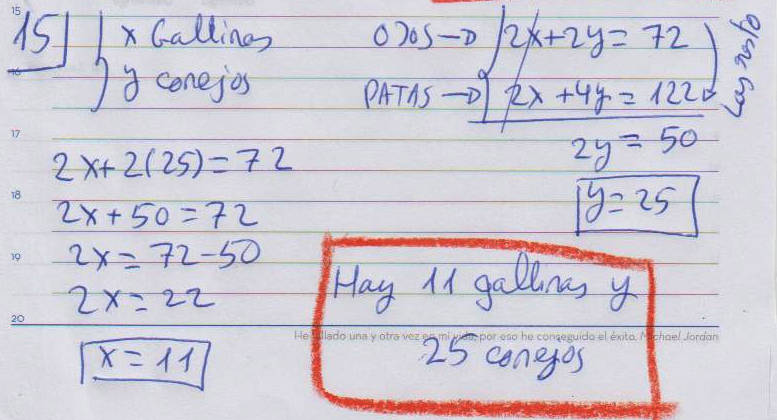 15
15
x Gallinas
y conejos
OJOS → 2x+2y = 72
PATAS → 2x+4y = 122
Los resto
2y = 50
y = 25
16
17
2x+2(25)=72
18
2x+50=72
19
2x=72-50
2x=22
20
x=11
Hay 11 gallinas y
25 conejos
He fallado una y otra vez en mi vida, por eso he conseguido el éxito. Michael Jordan